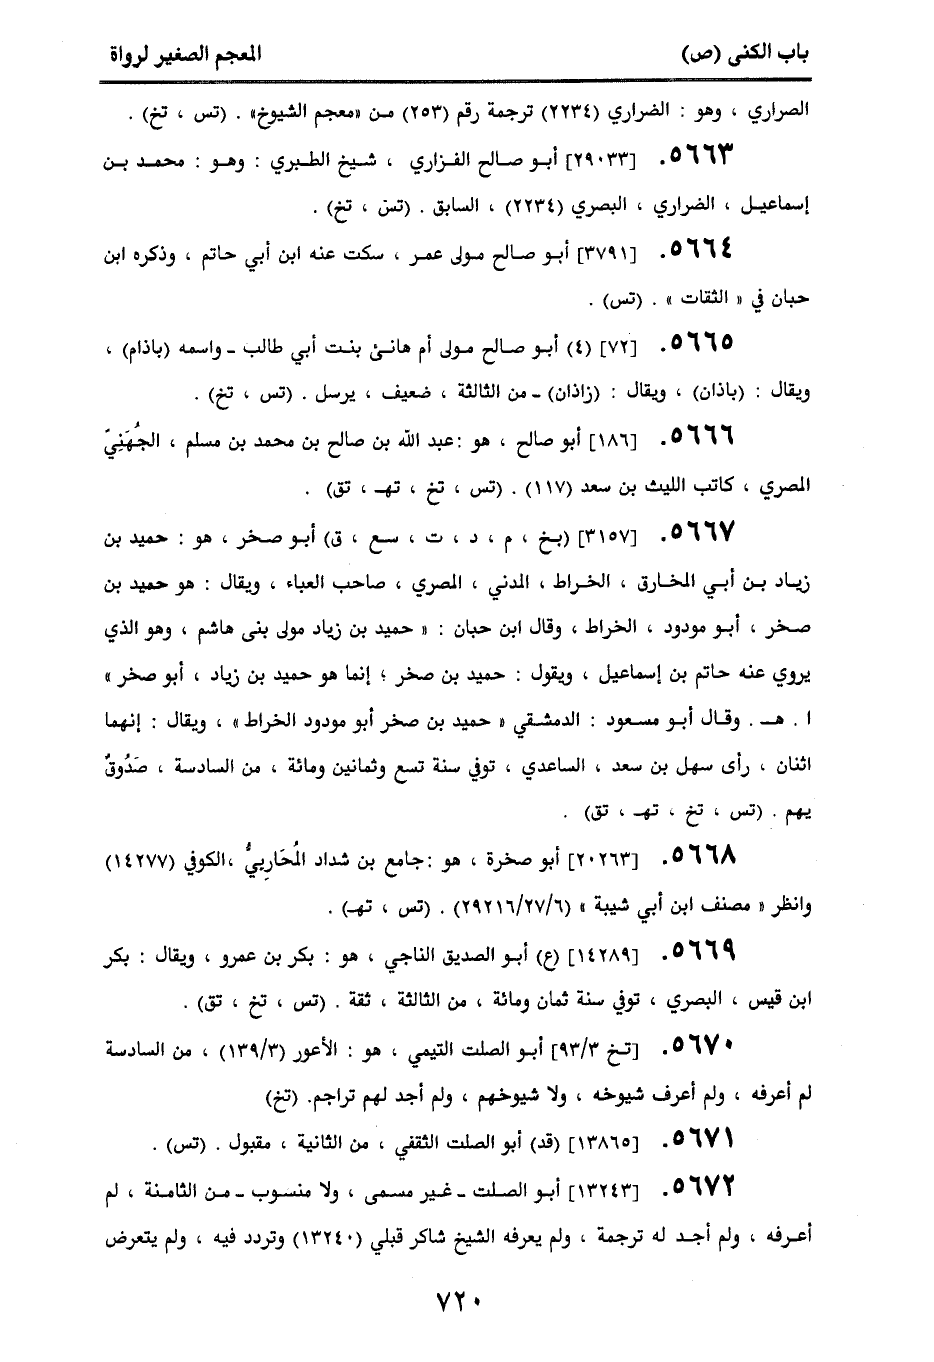 باب الكنى (ص)
المعجم الصغير لرواة
الصراري ، وهو : الضراري (٢٢٣٤) ترجمة رقم (٢٥٣) من «معجم الشيوخ» . (تس ، تخ) .
٥٦٦٣. [٢٩٠٣٣] أبو صالح الفزاري ، شيخ الطبري : وهو : محمد بن
إسماعيل ، الضراري ، البصري (٢٢٣٤) ، السابق . (تس ، تخ) .
٥٦٦٤. [٣٧٩١] أبو صالح مولى عمر ، سكت عنه ابن أبي حاتم ، وذكره ابن
حبان في « الثقات » . (تس) .
٥٦٦٥. [٧٢] (٤) أبو صالح مولى أم هانئ بنت أبي طالب ـ واسمه (باذام) ،
ويقال : (باذان) ، ويقال : (زاذان) ـ من الثالثة ، ضعيف ، يرسل . (تس ، تخ) .
٥٦٦٦. [١٨٦] أبو صالح ، هو :عبد الله بن صالح بن محمد بن مسلم ، الجُهَنِيّ
المصري ، كاتب الليث بن سعد (١١٧) . (تس ، تخ ، تهـ ، تق) .
٥٦٦٧. [٣١٥٧] (بخ ، م ، د ، ت ، سع ، ق) أبو صخر ، هو : حميد بن
زياد بن أبي المخارق ، الخراط ، المدني ، المصري ، صاحب العباء ، ويقال : هو حميد بن
صخر ، أبو مودود ، الخراط ، وقال ابن حبان : « حميد بن زياد مولى بنى هاشم ، وهو الذي
يروي عنه حاتم بن إسماعيل ، ويقول : حميد بن صخر ؛ إنما هو حميد بن زياد ، أبو صخر »
ا . هـ . وقال أبو مسعود : الدمشقي « حميد بن صخر أبو مودود الخراط » ، ويقال : إنهما
اثنان ، رأى سهل بن سعد ، الساعدي ، توفي سنة تسع وثمانين ومائة ، من السادسة ، صَدُوقٌ
يهم . (تس ، تخ ، تهـ ، تق) .
٥٦٦٨. [٢٠٢٦٣] أبو صخرة ، هو :جامع بن شداد المُحَارِبيُّ ،الكوفي (١٤٢٧٧)
وانظر « مصنف ابن أبي شيبة » (٢٩٢١٦/٢٧/٦) . (تس ، تهـ) .
٥٦٦٩. [١٤٢٨٩] (ع) أبو الصديق الناجي ، هو : بكر بن عمرو ، ويقال : بكر
ابن قيس ، البصري ، توفي سنة ثمان ومائة ، من الثالثة ، ثقة . (تس ، تخ ، تق) .
٥٦٧٠. [تخ ٩٣/٣] أبو الصلت التيمي ، هو : الأعور (١٣٩/٣) ، من السادسة
لم أعرفه ، ولم أعرف شيوخه ، ولا شيوخهم ، ولم أجد لهم تراجم. (تخ)
٥٦٧١. [١٣٨٦٥] (قد) أبو الصلت الثقفي ، من الثانية ، مقبول . (تس) .
٥٦٧٢. [١٣٢٤٣] أبو الصلت ـ غير مسمى ، ولا منسوب ـ من الثامنة ، لم
أعرفه ، ولم أجد له ترجمة ، ولم يعرفه الشيخ شاكر قبلي (١٣٢٤٠) وتردد فيه ، ولم يتعرض
٧٢٠